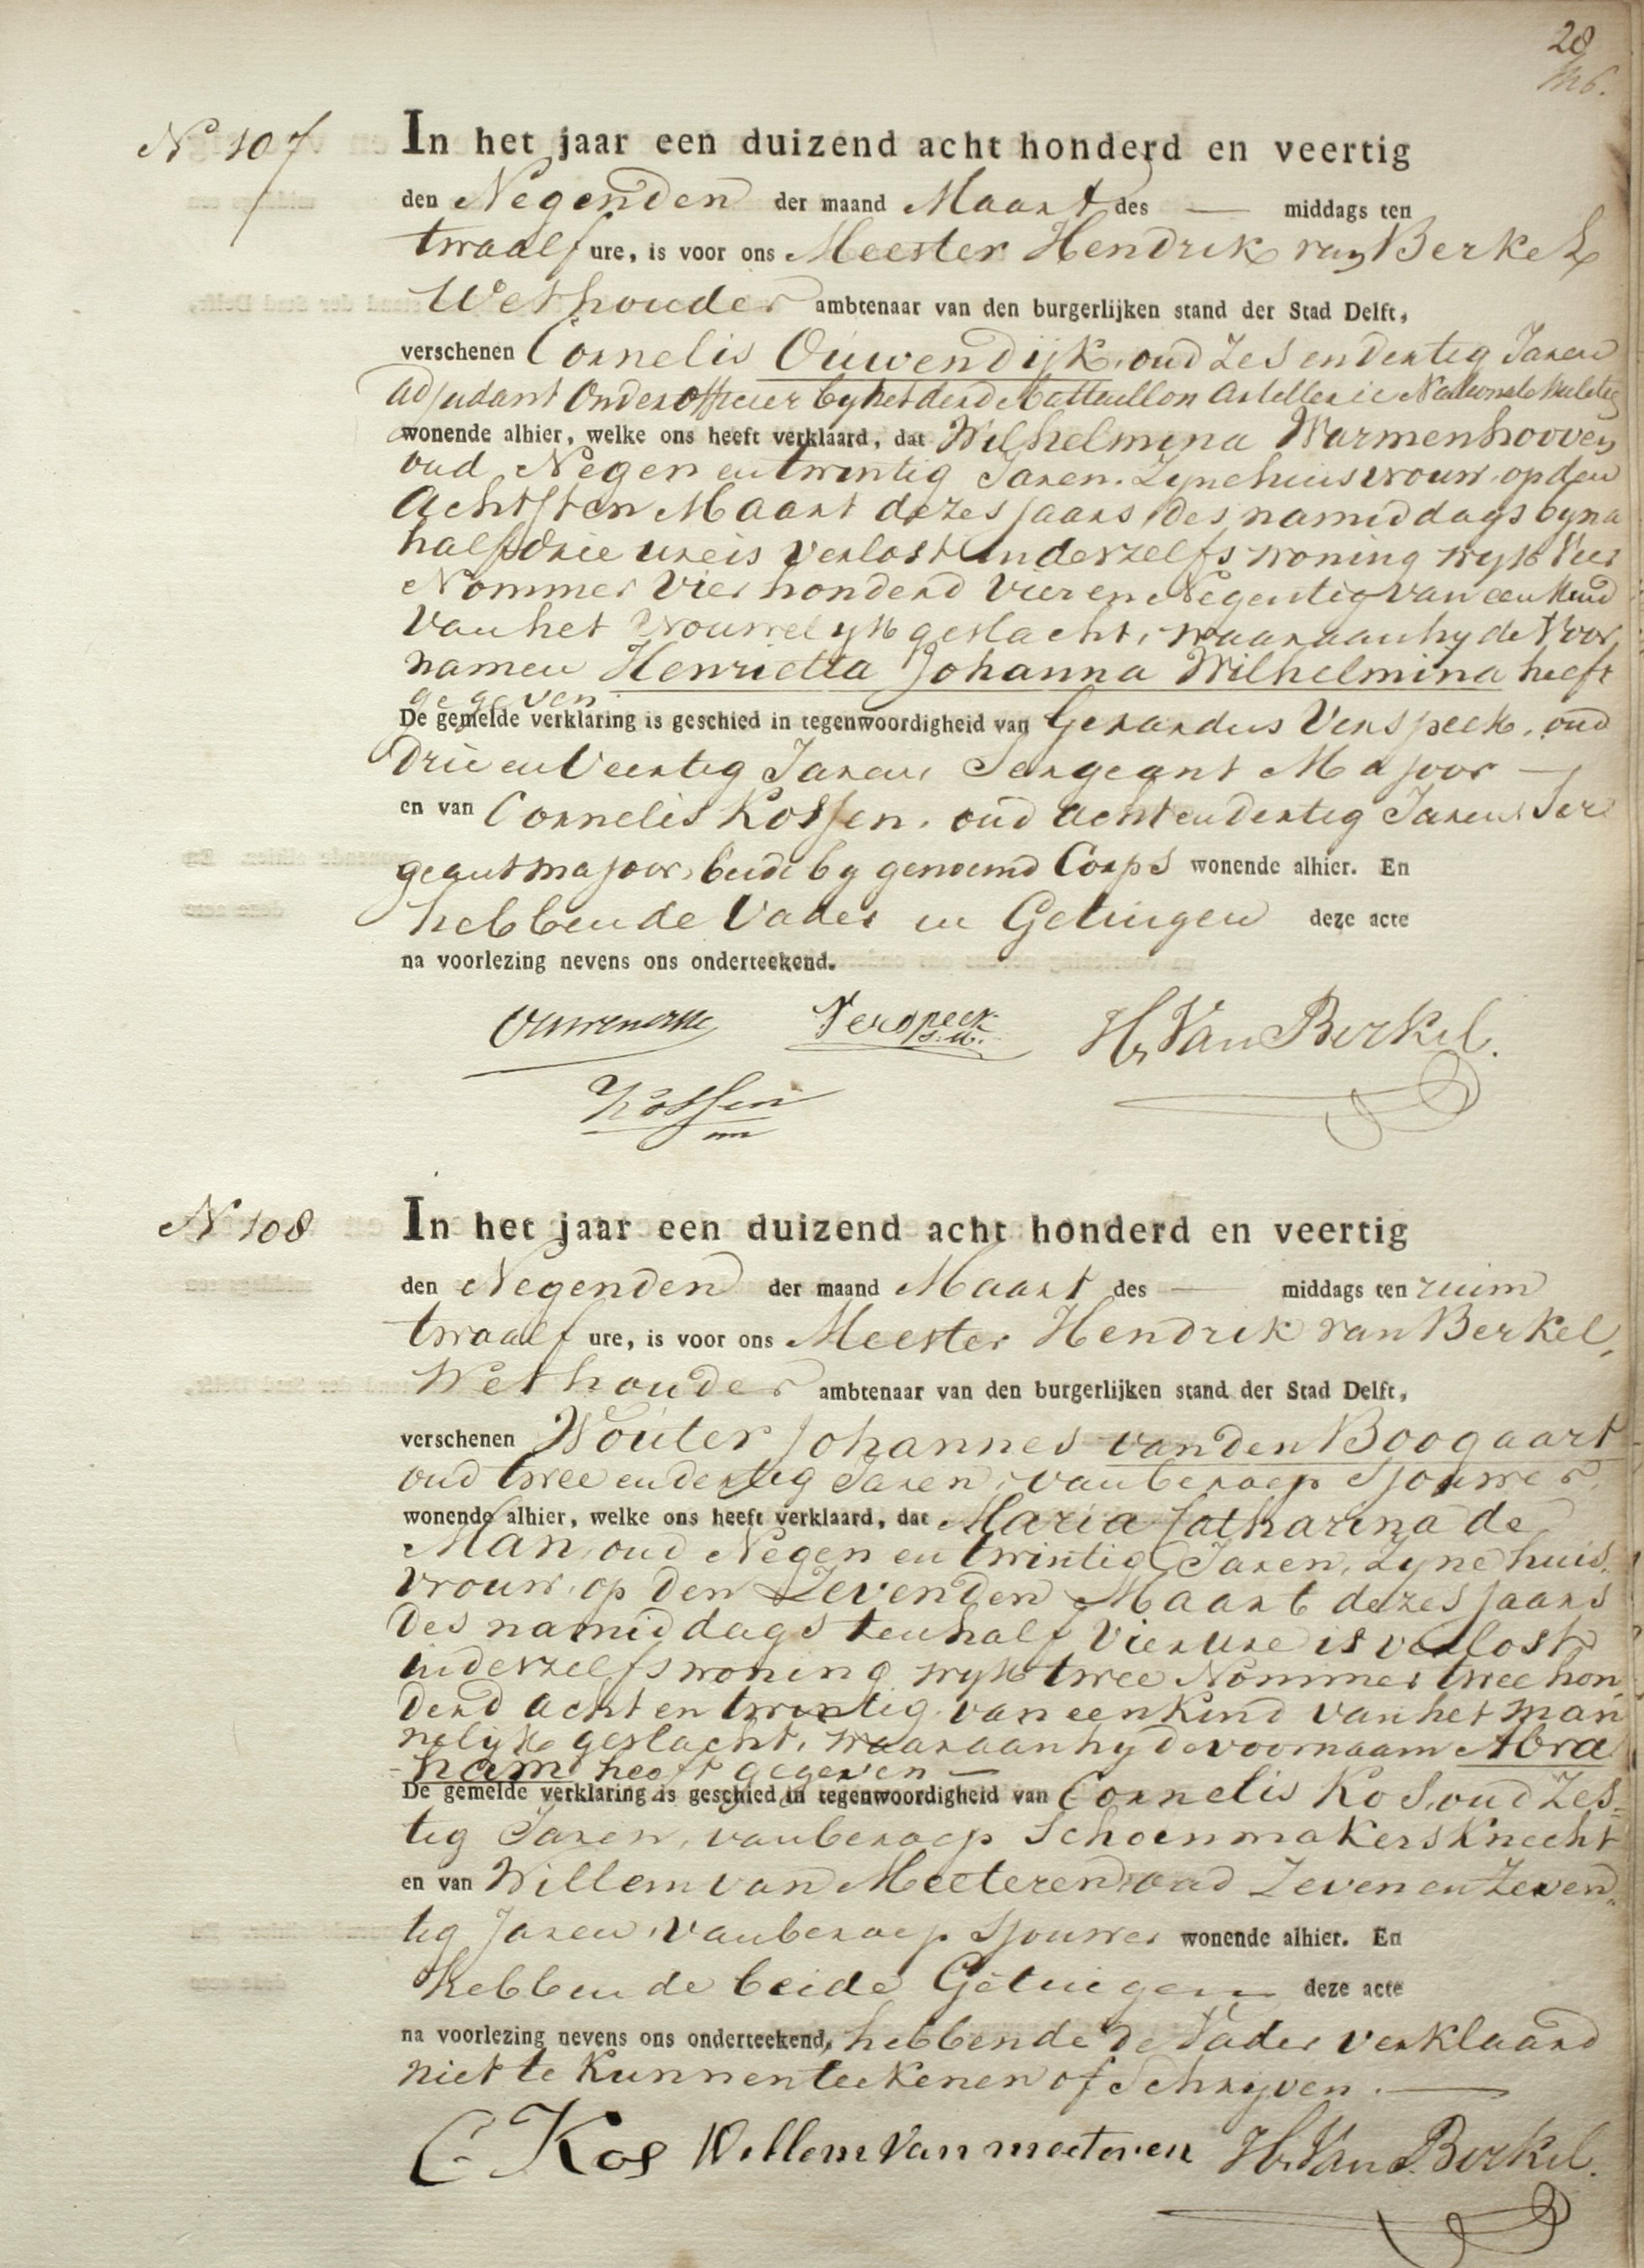 28
N° 107
In het jaar een duizend acht honderd en veertig
den Negenden der maand Maart des — middags ten
twaalf ure, is voor ons Meester Hendrik van Berkel
Wethouder ambtenaar van den burgerlijken stand der Stad Delft,
verschenen Cornelis Ouwendijk, oud Zes en dertig Jaren
Adjudant Onderofficier by het derd Battaillon Artellerie Nationale Militie
wonende alhier, welke ons heeft verklaard, dat Wilhelmina Warmenhoven
oud Negen en twintig Jaren. Zyne huisvrouw, op den
Achtsten Maart dezes jaars des namiddags byna
half drie ure is verlost in derzelfs woning wyk Vier
Nommer Vier honderd Vier en Negentig van een Kind
van het Vrouwelyk geslacht, waaraan hy de Voor,
namen Henrietta Johanna Wilhelmina heeft
gegeven.
De gemelde verklaring is geschied in tegenwoordigheid van Gerardus Verspeek, oud
Drie en Veertig Jaren, Sergeant Majoor —
en van Cornelis Kossen, oud acht en dertig Jaren Ser
geant majoor, beide by genoemd Corps wonende alhier. En
hebben de Vader en Getuigen deze acte
na voorlezing nevens ons onderteekend.
Ouwendijk Verspeek H. Van Berkel.
s.m.
Kossen
N° 108
In het jaar een duizend acht honderd en veertig
den Negenden der maand Maart des — middags ten ruim
twaalf ure, is voor ons Meester Hendrik van Berkel,
Wethouder ambtenaar van den burgerlijken stand der Stad Delft,
verschenen Wouter Johannes van den Boogaart
oud twee en dertig Jaren, van beroep Sjouwer
wonende alhier, welke ons heeft verklaard, dat Maria Catharina de
Man, oud Negen en twintig Jaren, Zyne huis,
vrouw, op den Zevenden Maart dezes jaars
Des namiddags ten half Vier ure is verlost
in derzelfs woning wyk twee Nommer twee hon,
derd acht en twintig van een Kind van het man
nelyke geslacht, waaraan hy de voornaam Abra
ham heeft gegeven —
De gemelde verklaring is geschied in tegenwoordigheid van Cornelis Kos, oud Zes=
tig Jaren, van beroep Schoenmakersknecht
en van Willem van Meeteren oud Zeven en Zeven,
tig Jaren, van beroep Sjouwer wonende alhier. En
hebben de beide Getuigen deze acte
na voorlezing nevens ons onderteekend, hebbende de Vader verklaard
niet te Kunnen teekenen of Schryven. —
C Kos Willem van meeteren H. Van Berkel.